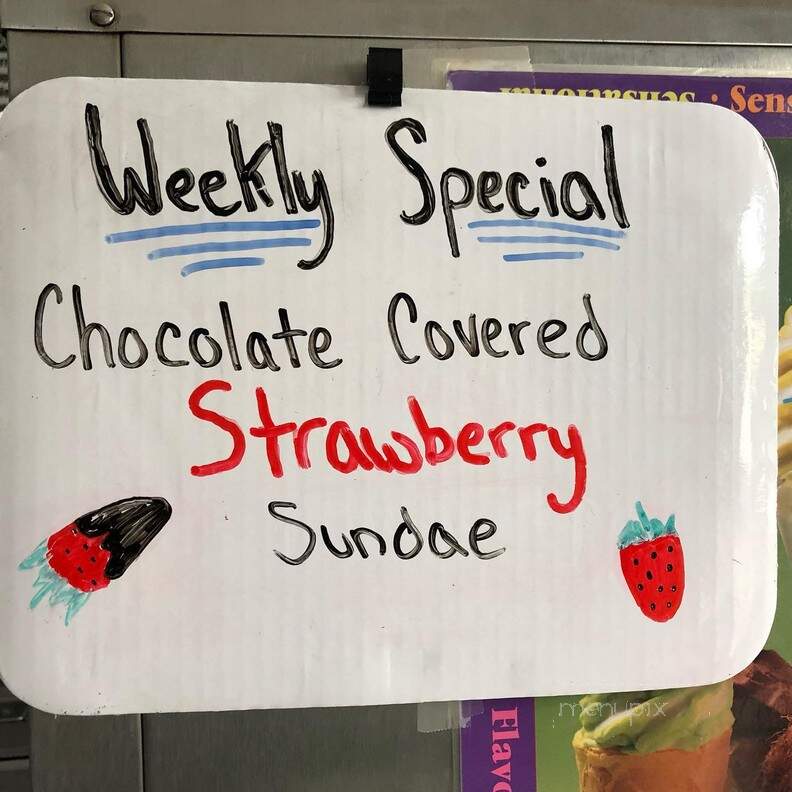 Weekly Special
Chocolate Covered
Strawberry
Sundae
menupix